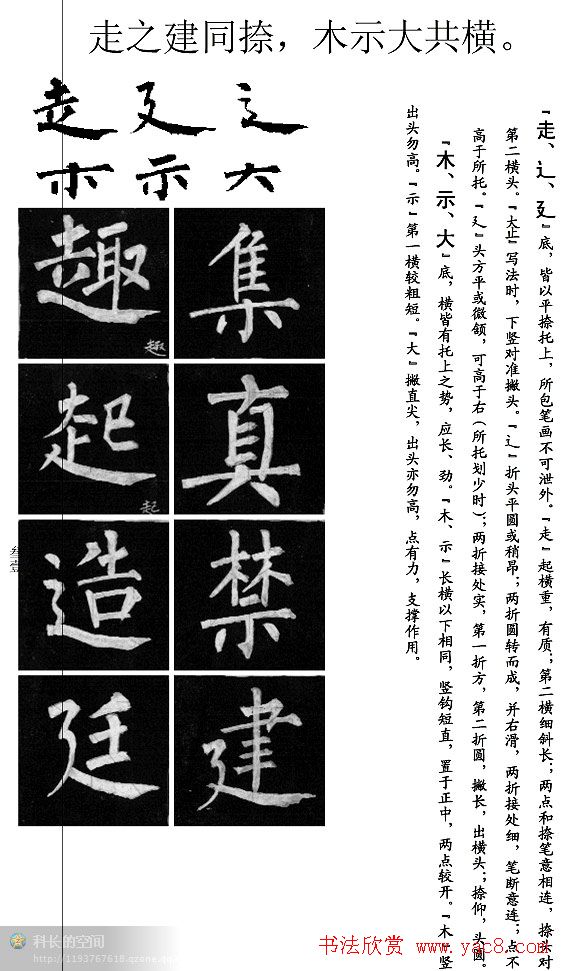 走之建同捺，木示大共横。
走 廴 辶
木 示 大
趣 集
趣
起 真
起
造 禁
廷 建
叁壹
『走、辶、廴』底，皆以平捺托上，所包笔画不可泄外。『走』起横重，有质；第二横细斜长；两点和捺笔意相连，捺头对
第二横头。『大止』写法时，下竖对准撇头。『辶』折头平圆或稍昂；两折圆转而成，并右滑，两折接处细，笔断意连；点不
高于所托。『廴』头方平或微颔，可高于右（所托划少时）；两折接处实，第一折方，第二折圆，撇长，出横头；捺仰，头圆。
『木、示、大』底，横皆有托上之势，应长、劲。『木、示』长横以下相同，竖钩短直，置于正中，两点较开。『木』竖
出头勿高。『示』第一横较粗短。『大』撇直尖，出头亦勿高，点有力，支撑作用。
科长的空间
http://1193767618.qzone.qq.
书法欣赏 www.yac8.com